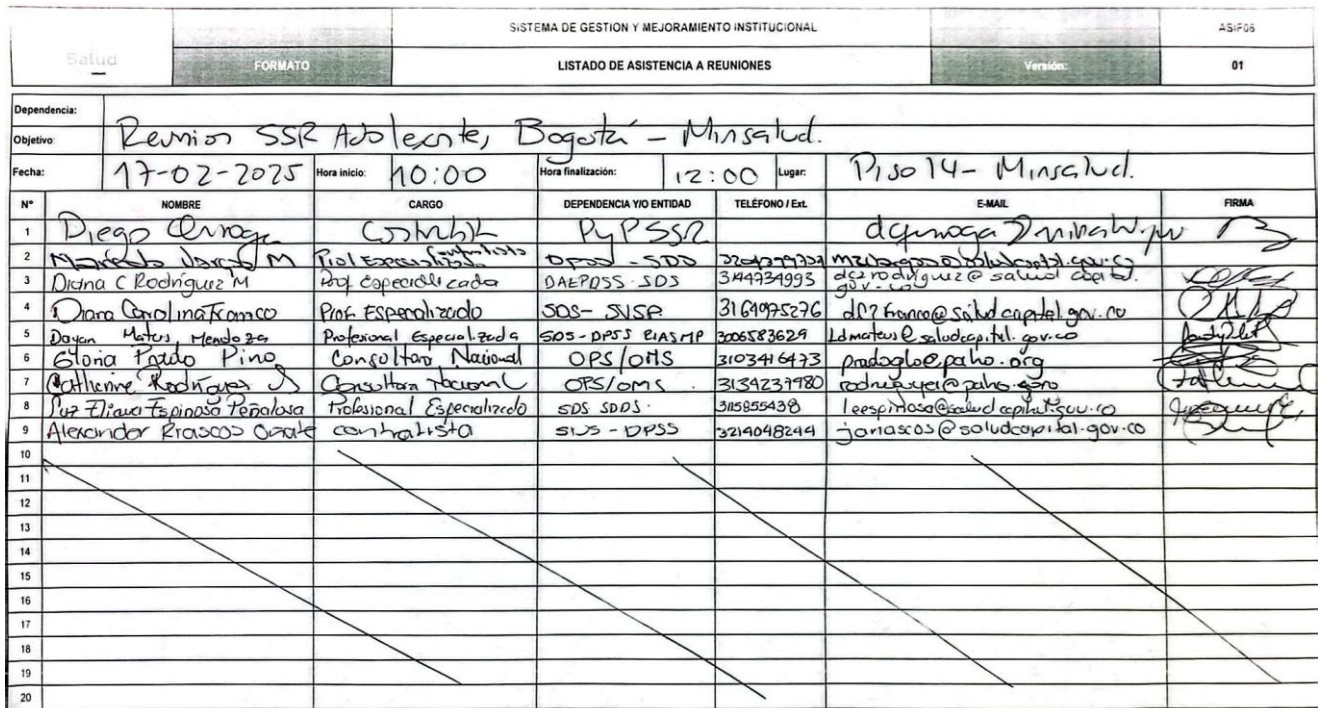 SISTEMA DE GESTION Y MEJORAMIENTO INSTITUCIONAL
ASIF06
Salud
FORMATO
LISTADO DE ASISTENCIA A REUNIONES
Versión:
01
Dependencia:
Objetivo: Reunion SSR Adolecnte, Bogotá - Minsalud.
Fecha: 17-02-2025 Hora inicio: 10:00 Hora finalización: 12:00 Lugar: Piso 14 - Minsalud.
N° NOMBRE CARGO DEPENDENCIA Y/O ENTIDAD TELÉFONO / Ext. E-MAIL FIRMA
1 Diego PyP SSR
2 M DPSS - SDS
3 Diana C Rodríguez M Prof especializada DAEPDSS - SDS 3144934993 dc2rodriguez@saludcapital.gov.co
4 Diana Carolina Franco Prof. Especializado SDS - SVSP 3164975276 dc2franco@saludcapital.gov.co
5 Dayan Mateus Mendoza Profesional Especializada SDS-DPSS RIASMP 3006583629 Ldmateus@saludcapital.gov.co
6 Gloria Prado Pino Consultora Nacional OPS/OMS 3103416473 pradoglo@paho.org
7 Catherine Rodríguez Consultora Nacional OPS/OMS 3134237980
8 Luz Eliana Espinosa Peñalosa Profesional Especializado SDS SDDS. 3115855438 leespinosa@saludcapital.gov.co
9 Alexander Riascos Oñate contratista SDS - DPSS 3214048244 jariascos@saludcapital.gov.co
10
11
12
13
14
15
16
17
18
19
20